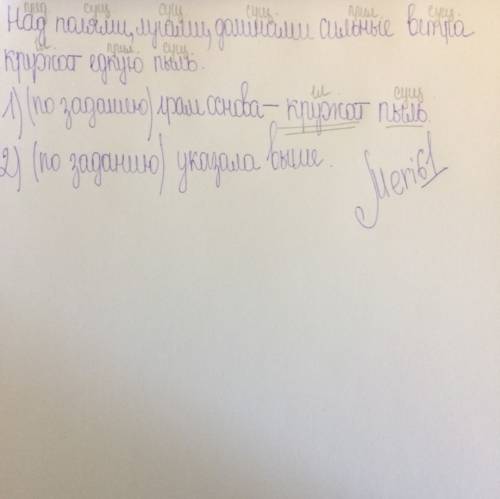 пред сущ сущ сущ прил сущ
Над полями, лугами, долинами сильные ветра
гл прил сущ
кружат едкую пыль.
гл сущ
1) (по заданию) грам основа – кружат пыль.
2) (по заданию) указала выше.
Meri61